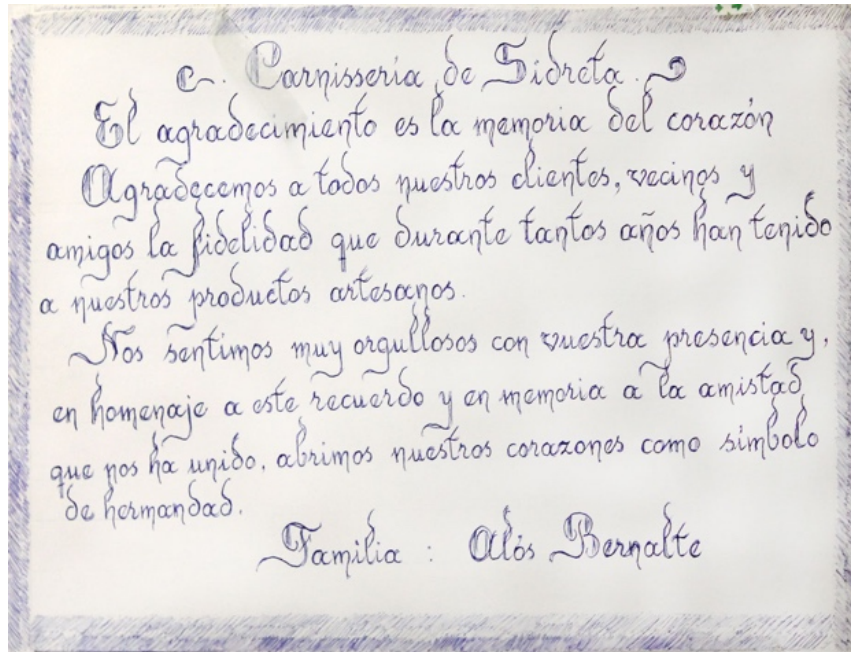 Carnissería de Sidreta.
El agradecimiento es la memoria del corazón
Agradecemos a todos nuestros clientes, vecinos y
amigos la fidelidad que durante tantos años han tenido
a nuestros productos artesanos.
Nos sentimos muy orgullosos con vuestra presencia y,
en homenaje a este recuerdo y en memoria a la amistad
que nos ha unido, abrimos nuestros corazones como símbolo
de hermandad.
Familia : Alós Bernalte